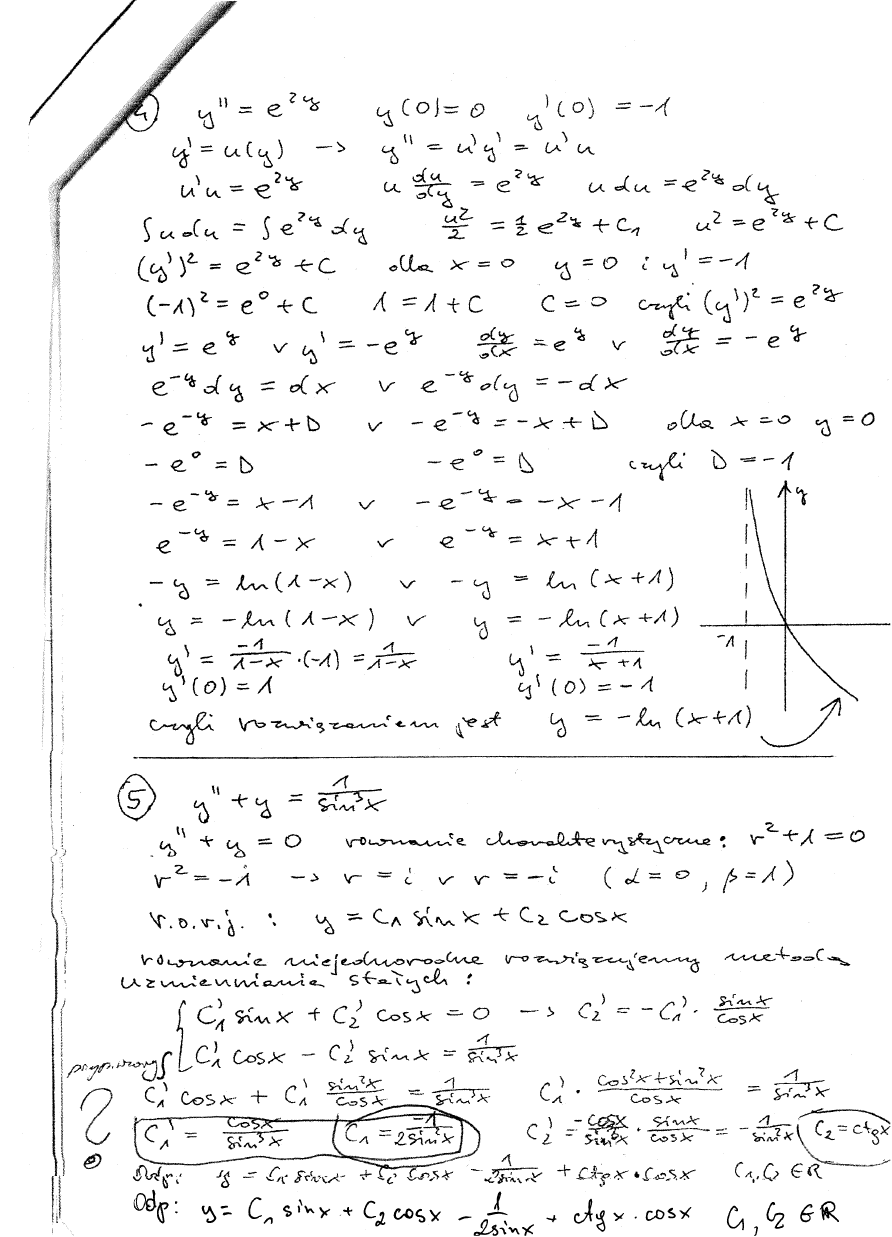 4 y'' = e^{2y} y(0) = 0 y'(0) = -1
y' = u(y) -> y'' = u'y' = u'u
u'u = e^{2y} u \frac{du}{dy} = e^{2y} u du = e^{2y} dy
∫u du = ∫e^{2y} dy \frac{u^2}{2} = \frac{1}{2} e^{2y} + C_1 u^2 = e^{2y} + C
(y')^2 = e^{2y} + C dla x = 0 y = 0 i y' = -1
(-1)^2 = e^0 + C 1 = 1 + C C = 0 czyli (y')^2 = e^{2y}
y' = e^y v y' = -e^y \frac{dy}{dx} = e^y v \frac{dy}{dx} = -e^y
e^{-y} dy = dx v e^{-y} dy = -dx
-e^{-y} = x + D v -e^{-y} = -x + D dla x = 0 y = 0
-e^0 = D -e^0 = D czyli D = -1
-e^{-y} = x - 1 v -e^{-y} = -x - 1
y
e^{-y} = 1 - x v e^{-y} = x + 1
-y = ln(1-x) v -y = ln(x+1)
y = -ln(1-x) v y = -ln(x+1)
-1
y' = \frac{-1}{1-x} · (-1) = \frac{1}{1-x} y' = \frac{-1}{x+1}
y'(0) = 1 y'(0) = -1
czyli rozwiązaniem jest y = -ln(x+1)
5 y'' + y = \frac{1}{sin^3x}
y'' + y = 0 równanie charakterystyczne: r^2 + 1 = 0
r^2 = -1 -> r = i v r = -i (α = 0, β = 1)
r.o.r.j. : y = C_1 sin x + C_2 cos x
równanie niejednorodne rozwiązujemy metodą
uzmienniania stałych :
C_1' sin x + C_2' cos x = 0 -> C_2' = -C_1' · \frac{sin x}{cos x}
C_1' cos x - C_2' sin x = \frac{1}{sin^3x}
C_1' cos x + C_1' \frac{sin^2x}{cos x} = \frac{1}{sin^3x} C_1' · \frac{cos^2x + sin^2x}{cos x} = \frac{1}{sin^3x}
? C_1' = \frac{cos x}{sin^3x} C_1 = \frac{-1}{2sin^2x} C_2' = \frac{-cos x}{sin^3x} · \frac{sin x}{cos x} = -\frac{1}{sin^2x} C_2 = ctg x
Odp: y = C_1 sin x + C_2 cos x - \frac{1}{2sin x} + ctg x · cos x C_1, C_2 ∈ R
Odp: y = C_1 sin x + C_2 cos x - \frac{1}{2sin x} + ctg x · cos x C_1, C_2 ∈ R